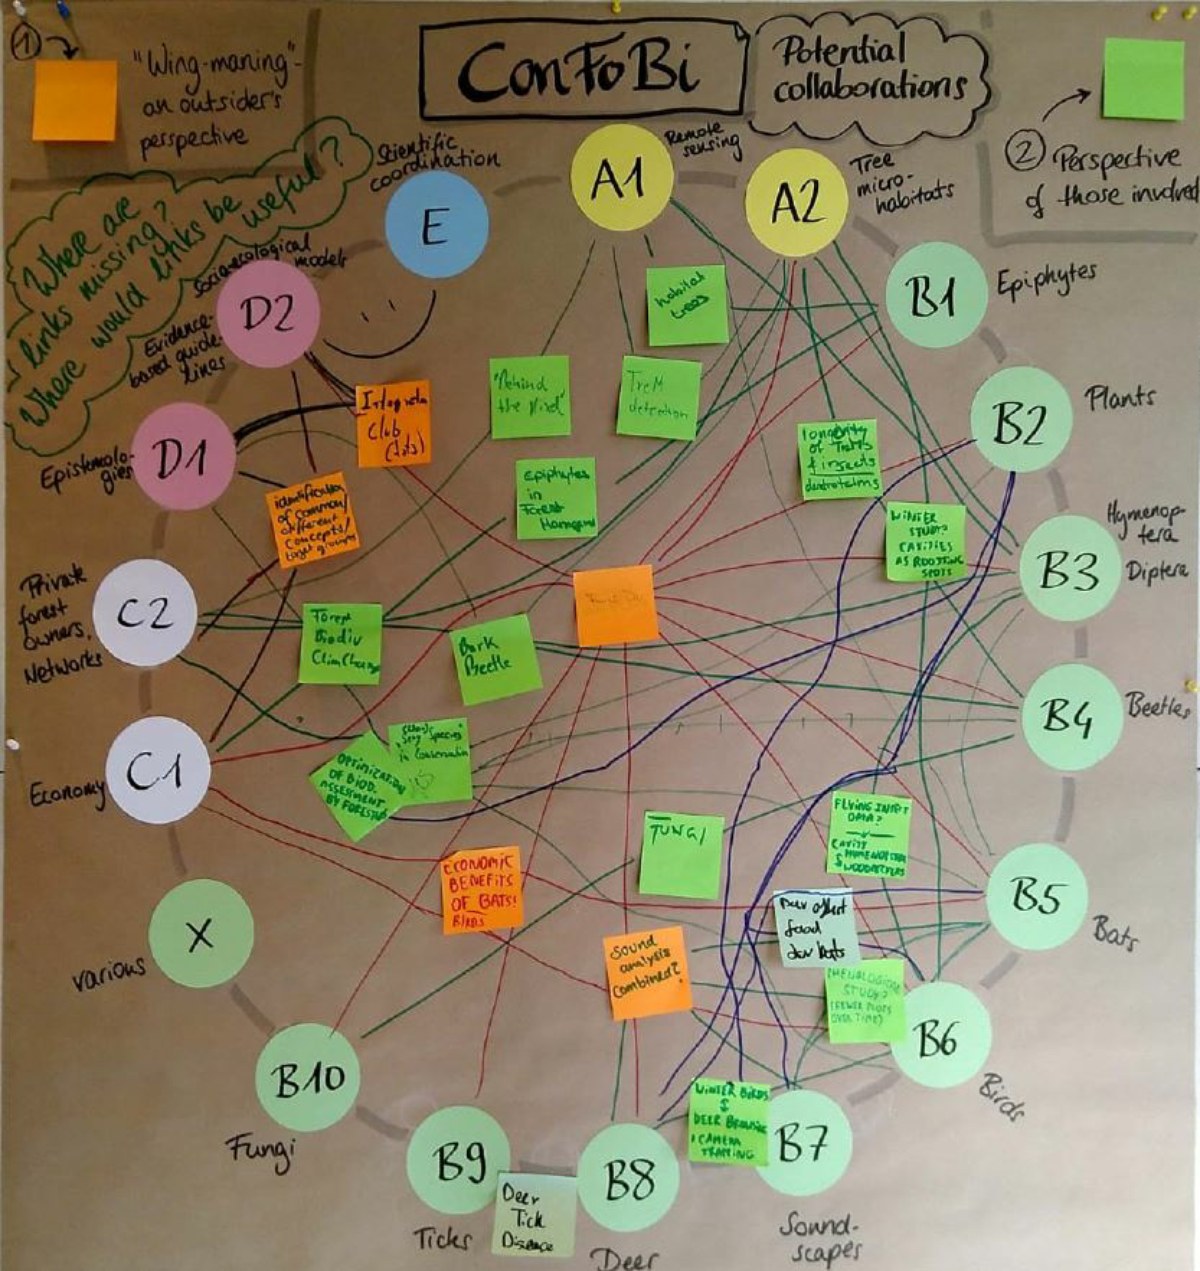 ①
"Wing-maning"-
an outsider's
perspective
ConFoBi
Potential
collaborations
② Perspective
of those involved
Where are
links missing?
Where would links be useful?
Scientific
coordination
E
A1
Remote
sensing
A2
Tree
micro-
habitats
B1
Epiphytes
B2
Plants
B3
Hymenop-
tera
Diptera
B4
Beetles
B5
Bats
B6
Birds
B7
Sound-
scapes
B8
Deer
B9
Ticks
B10
Fungi
X
various
C1
Economy
C2
Private
forest
owners,
Networks
D1
Epistemolo-
gies
D2
Socio-ecological
models
Evidence-
based guide-
lines
habitat
trees
"Behind
the
TreM
detection
Epiphytes
in
Forest
longevity
of TreMs
& insects
WINTER
STUDY?
CAVITIES
AS ROOSTING
SPOTS
Club
identification
of common/
different
concepts/
target groups
Forest
Biodiv
Clim Change
Bark
Beetle
species
in conservation
OPTIMIZATION
OF BIOD.
ASSESSMENT
BY FORESTERS
FUNGI
FLYING INSECT
DATA?
CAVITY
HYMENOPTERA
& WOODPECKERS
ECONOMIC
BENEFITS
OF BATS!
BIRDS
sound
analysis
combined?
Deer effect
food
for bats
PHENOLOGICAL
STUDY?
(FEWER PLOTS
OVER TIME)
WINTER BIRDS
&
DEER BROWSING
CAMERA
TRAPPING
Deer
Tick
Disease